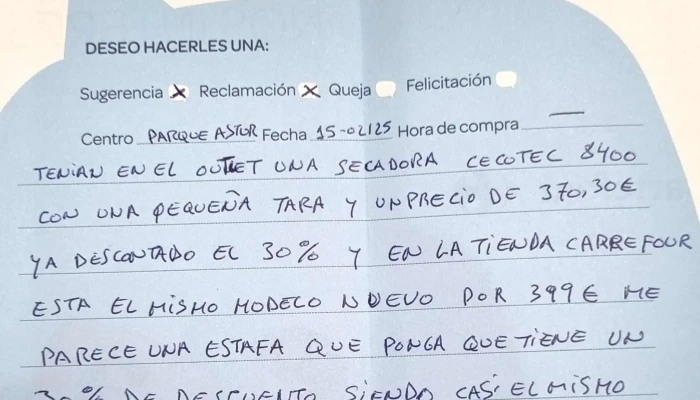 DESEO HACERLES UNA:
Sugerencia X Reclamación X Queja Felicitación
Centro PARQUE ASTUR Fecha 15-02125 Hora de compra —
TENIAN EN EL OUTLET UNA SECADORA CECOTEC 8400
CON UNA PEQUEÑA TARA Y UN PRECIO DE 370,30€
YA DESCONTADO EL 30% Y EN LA TIENDA CARREFOUR
ESTA EL MISMO MODELO NUEVO POR 399€ ME
PARECE UNA ESTAFA QUE PONGA QUE TIENE UN
30% DE DESCUENTO SIENDO CASI EL MISMO